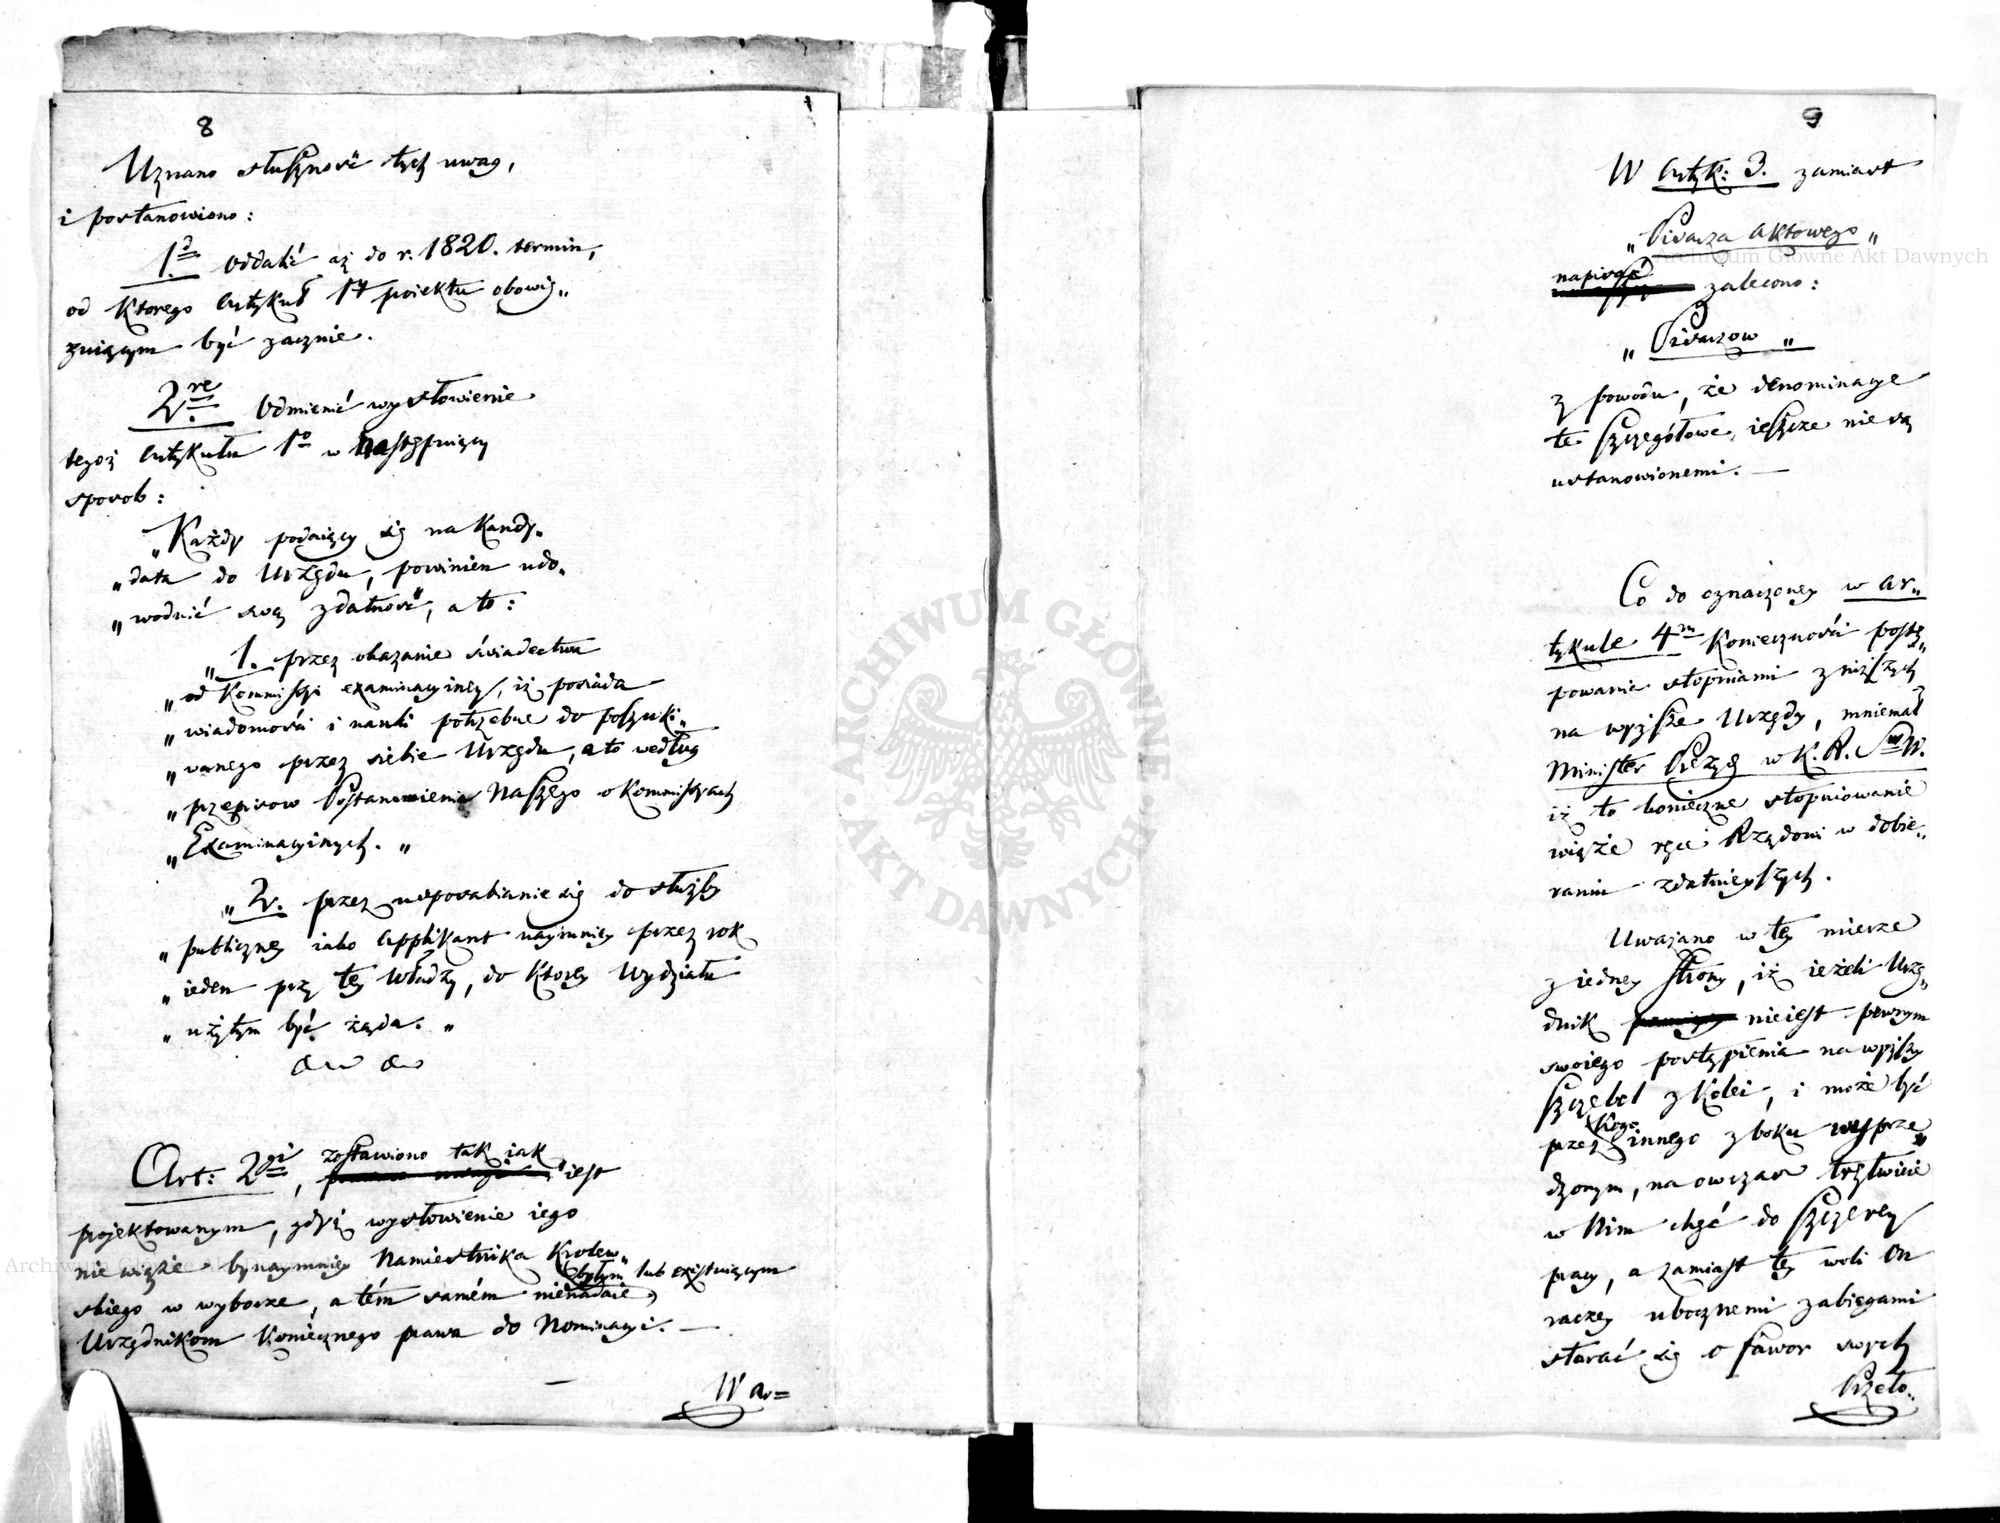 8
Uznano słuszność tych uwag,
i postanowiono:
1º Oddalić aż do r. 1820. termin,
od ktorego Artykuł 1y poiektu obowią„
zuiącym być zacznie.
2re Odmienić wysłowienie
tegoż Artykułu 1º w następuiący
sposob:
„Każdy podaiący się na Kandy„
„data do Urzędu, powinien udo„
„wodnić swą zdatność, a to:
„1. przez okazanie świadectwa
„od Kommissyi examinacyiney, iż posiada
„wiadomości i nauki potrzebne do poszuki„
„wanego przez siebie Urzędu, a to według
„przepisow Postanowienia Naszego o Kommissyach
„Examinacyinych. „
„2. przez usposabianie się do służby
„publiczney iako Applikant naymniey przez rok
„ieden przy tey Władzy, do ktorey Wydziału
„użytym być żąda. „
Art: 2gi, zostawiono tak iak iest
projektowanym, gdyż wysłowienie iego
nie wiąże bynaymniey Namiestnika Krolew„
skiego w wyborze, a tém samém nienadaie byłym lub exystuiącym
Urzędnikom koniecznego prawa do Nominacyi. —
W ar=
9
W Artyk: 3. zamiast
„Pisarza Aktowego„
napisać zalecono:
„Pisarzow„
z powodu, że denominacye
te szczegółowe, ieszcze nie są
ustanowionemi. —
Co do oznaczoney w ar„
tykule 4m konieczności postę„
powania stopniami z niższych
na wyższe Urzędy, mniemał
Minister Prezyd: w K. R. S. W.
iż to konieczne stopniowanie
wiąże ręce Rządowi w dobie„
raniu zdatnieyszych.
Uważano w tey mierze
z iedney strony, iż ieżeli Urzę„
dnik nieiest pewnym
swoiego postąpienia na wyższy
szczebel z kolei, i może być
przez kogo innego z boku wyprze„
dzonym, na owczas
w Nim chęć do szczerey
pracy, a zamiast tey woli On
raczey ubocznemi zabiegami
starać się o fawor swych
Przeło„
Archiwum Główne Akt Dawnych
ARCHIWUM GŁÓWNE AKT DAWNYCH